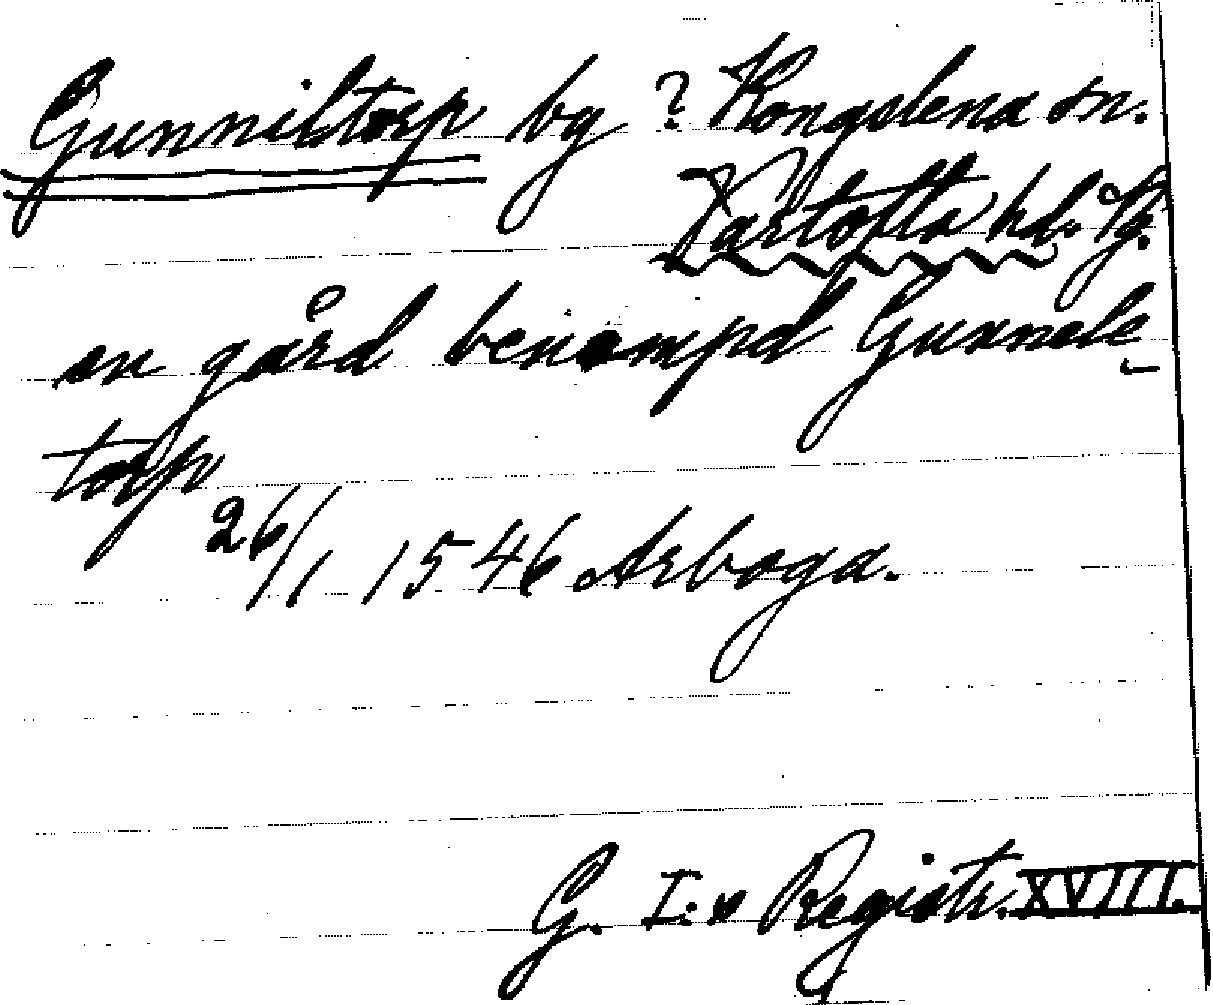 Gunniltorp by ? Kongslena sn.
Vartofta hd. Vg.
en gård benempd Gunnele
torp
26/1 1546 Arboga.
G. I:s Registr. XVIII.